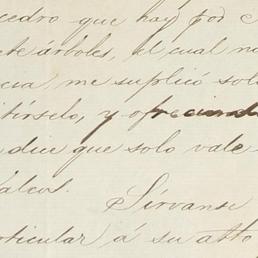 cedro que hay por
te árboles, el cual no
me suplicó soli
tírselo, y ofreciendo
dice que solo vale
alcos.
Sírvanse
articular á su atto